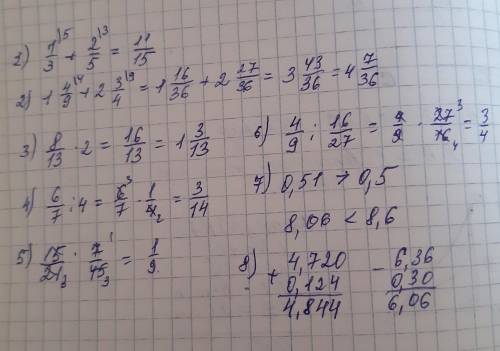 1) 1/3 ⁾⁵ + 2/5 ⁾³ = 11/15
2) 1 4/9 ⁾⁴ + 2 3/4 ⁾⁹ = 1 16/36 + 2 27/36 = 3 43/36 = 4 7/36
3) 8/13 · 2 = 16/13 = 1 3/13
4) 6/7 : 4 = 6³/7 · 1/4₂ = 3/14
5) 15/21₃ · 7¹/45₃ = 1/9
6) 4/9 : 16/27 = 4/9 · 27³/16₄ = 3/4
7) 0,51 > 0,5
8,06 < 8,6
8) + 4,720
0,124
4,844
- 6,36
0,30
6,06